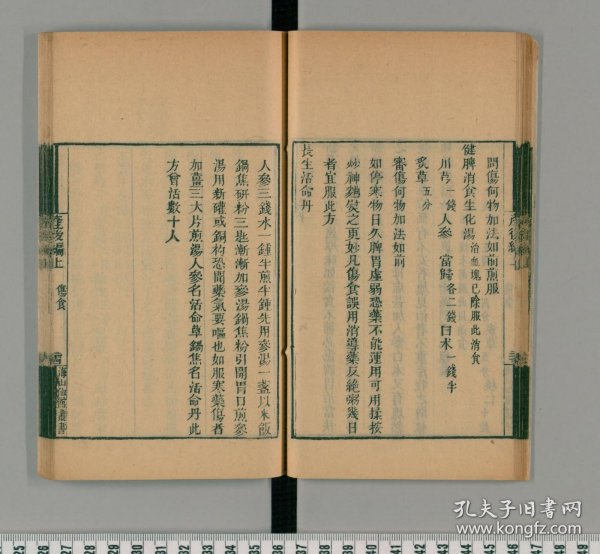 問傷何物加法如前煎服
健脾消食生化湯 治血塊已除服此消食
川芎一錢 人參 當歸各二錢 白朮一錢半
炙草五分
審傷何物加法如前
如停寒物日久脾胃虛弱恐藥不能運用可用揉按
炒神麯熨之更妙凡傷食誤用消導藥反絕粥幾日
者宜服此方
長生活命丹
人參三錢水一鍾半煎半鍾先用參湯一盞以米飯
鍋焦研粉三匙漸漸加參湯鍋焦粉引開胃口煎參
湯用新確或銅杓恐聞藥氣要嘔也如服寒藥傷者
加薑三大片煎湯人參名活命草鍋焦名活命丹此
方曾活數十人
產後編上
傷食
海山仙館叢書
孔夫子旧书网
www.kongfz.com
25
26
27
28
29
30
31
32
33
34
35
36
37
38
39
40
41
42
43
44
45
46
47
48
49